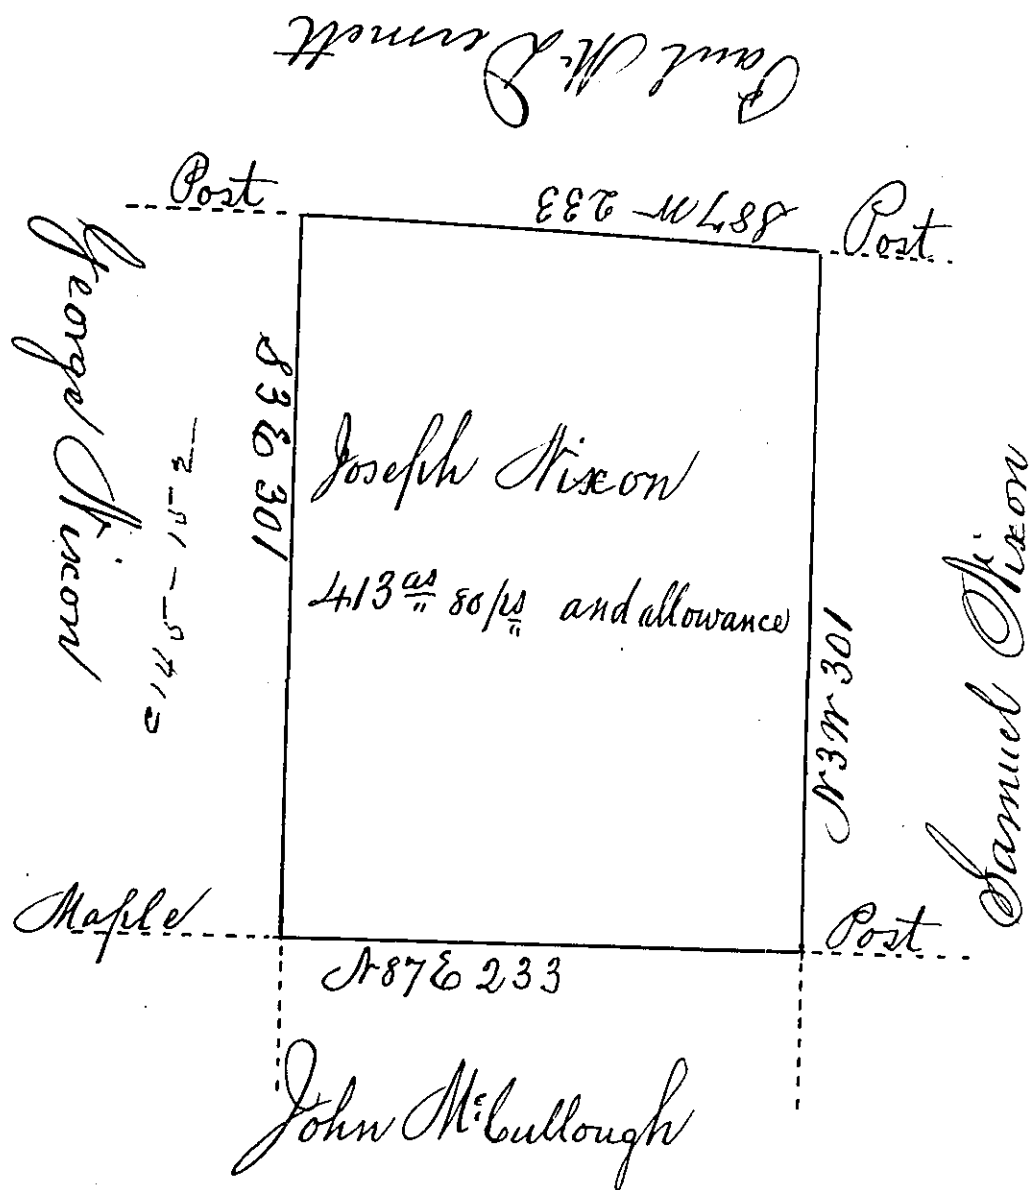 Paul Mc Dermett
Post
S87W 233
Post
George Nixon
S3E 301
Joseph Nixon
413 as 80 ps and allowance
N3W 301
Samuel Nixon
Maple
Post
N87E 233
John McCullough